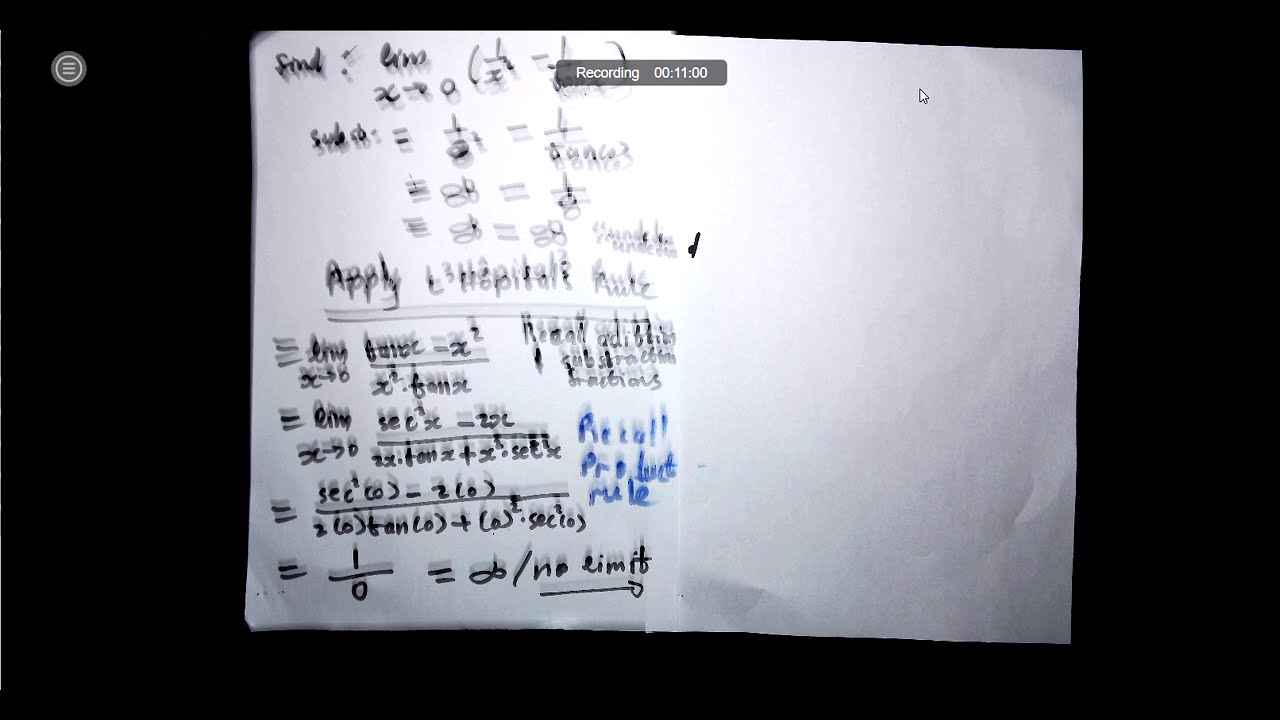 Find : lim (1/x² - 1/tanx)
x→0
Recording 00:11:00
subst: = 1/0² - 1/tan(0)
= ∞ - 1/0
= ∞ - ∞
Apply L'Hôpital's Rule
= lim x→0 tanx - x² / x²·tanx
Recall addition
substraction
fractions
= lim x→0 sec²x - 2x / 2x·tanx + x²·sec²x
Recall
product
rule
= sec²(0) - 2(0) / 2(0)tan(0) + (0)²·sec²(0)
= 1/0 = ∞/no limit